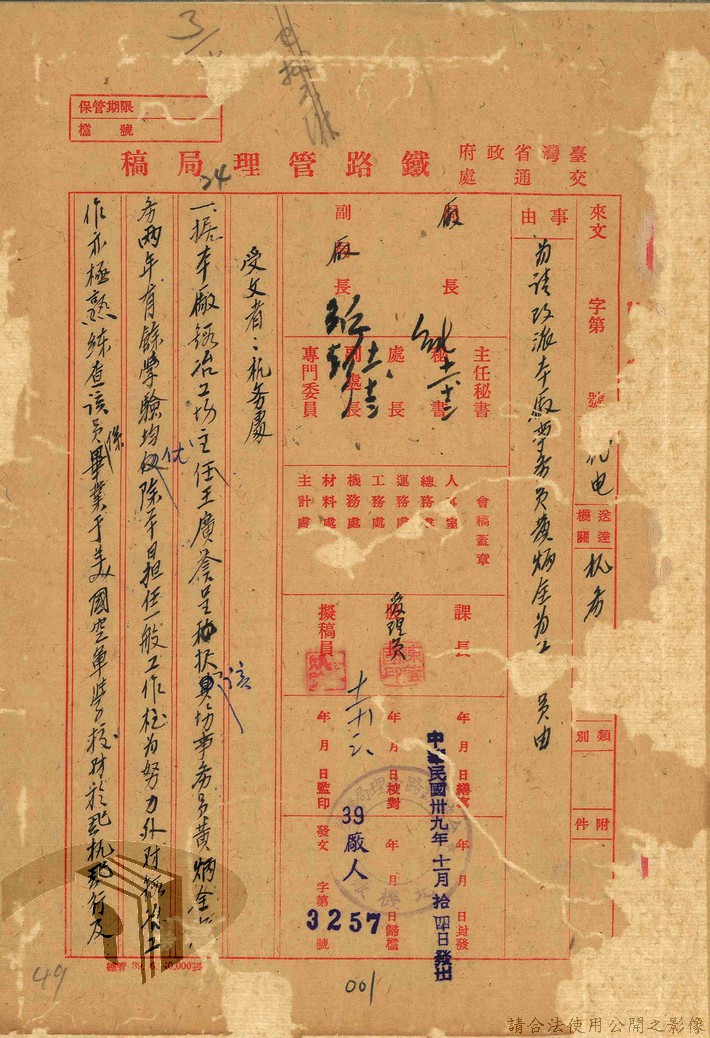 3
保管期限
檔號
臺灣省政府交通處
鐵路管理局稿
24
來文 字第 號
代电
送達機關
机务
類別
附件
事由
为请改派本廠事务員黃炳全为工 員由
廠長
副廠長
主任秘書
秘書
處長
副處長
專門委員
會稿蓋章
人事室
總務處
運務處
工務處
機務處
材料處
主計處
課長
股長
管理員
擬稿員
年 月 日繕寫
年 月 日校對
年 月 日監印
年 月 日封發
年 月 日歸檔
發文 字第 號
中華民國卅九年十一月拾四日發出
39廠人
3257
受文者：机务處
一、據本廠鍛冶工场主任王廣養呈称扶該场事务員黃炳全
务兩年有餘学驗均优除平日担任一般工作極为努力外对
作亦極熟练查該員係畢業于美國空軍学校对於飛机飛行及
49
001
請合法使用公開之影像